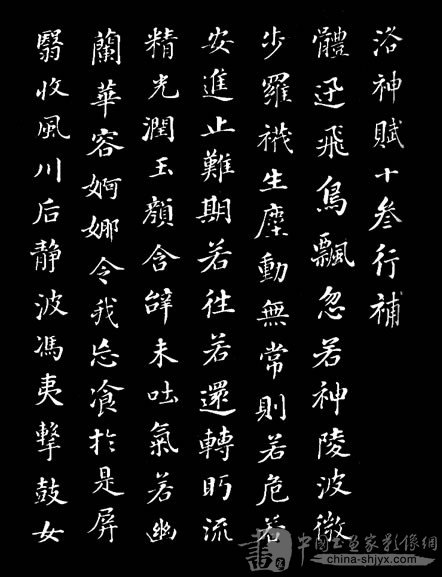 洛神賦十叄行補
體迅飛鳥飄忽若神陵波微
步羅襪生塵動無常則若危若
安進止難期若往若還轉眄流
精光潤玉顏含辭未吐氣若幽
蘭華容婀娜令我忘飡於是屏
翳收風川后静波馮夷擊鼓女
中国书画家影像網
china-shjyx.com